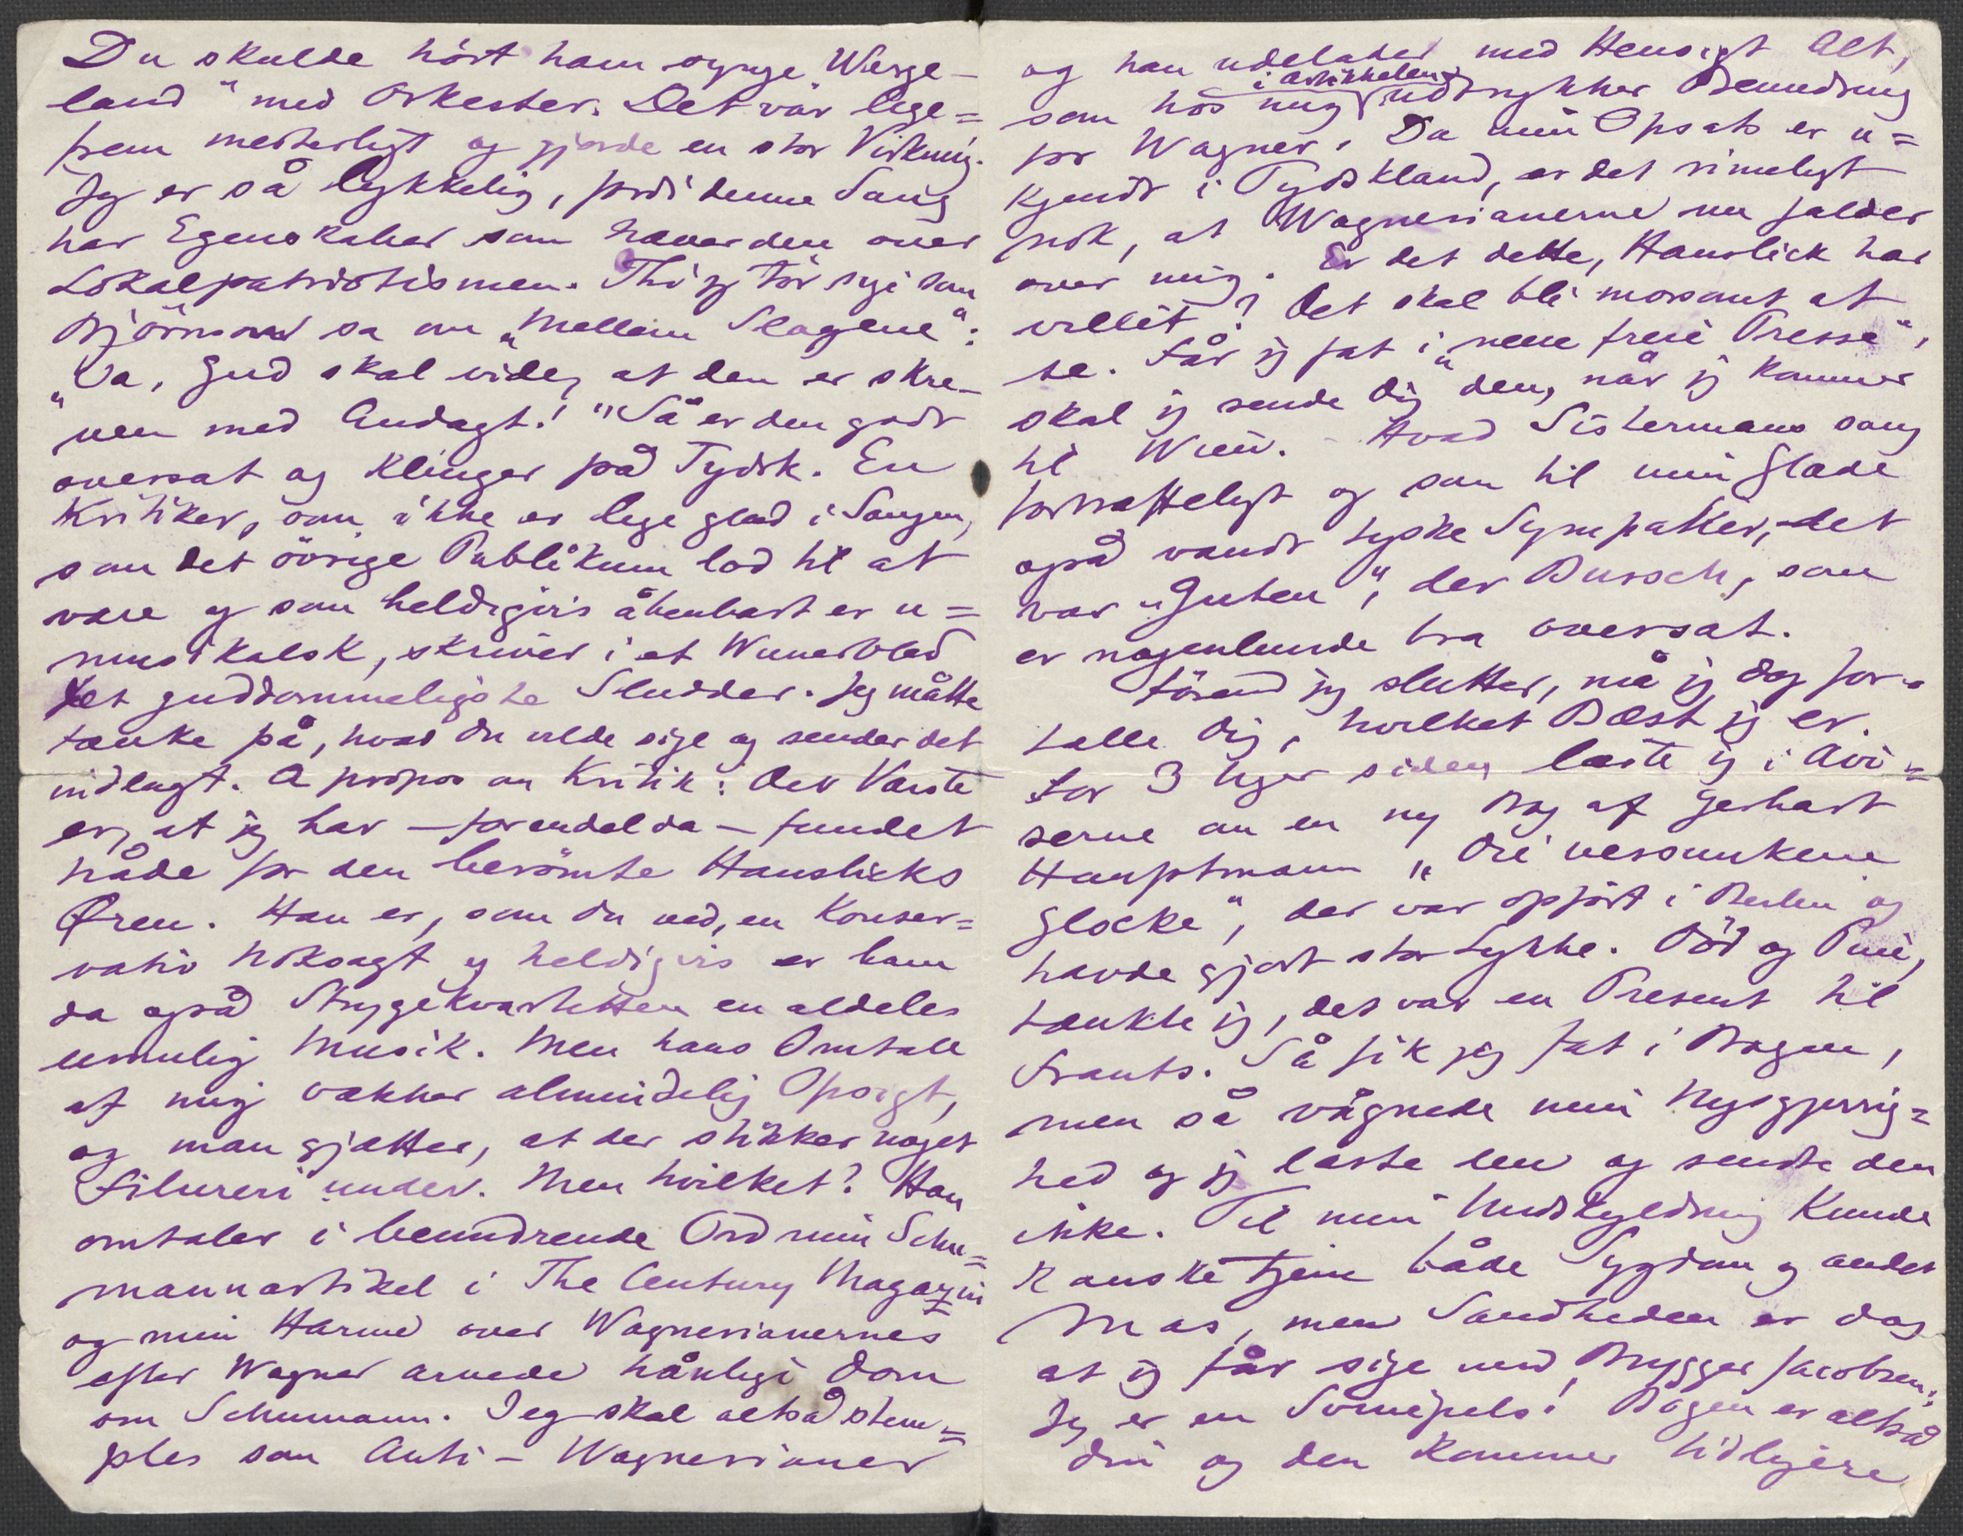 Du skulde hört ham synge "Werge-
land" med Orkester. Det var lige=
frem mesterligt og gjorde en stor Virkning.
Jeg er så lykkelig, fordi denne Sang
har Egenskaber som hæver den over
Lokalpatriotismen. Thi jeg tör sige som
Björnson sa om „Mellem Slagene":
"Ja, Gud skal vide, at den er skre-
ven med Andagt!" Så er den godt
oversat og klinger på Tydsk. En
Kritiker, som ikke er lige glad i Sangen,
som det övrige Publikum lod til at
være og som heldigvis åbenbart er u=
musikalsk, skriver i et Wienerblad
det guddommeligste Sludder. Jeg måtte
tænke på, hvad Du vilde sige og sender det
indlagt. A propos om Kritik: Det Værste
er, at jeg har – for en del da – fundet
nåde for den berömte Hanslicks
Øren. Han er, som Du ved, en Konser=
vativ Noksagt og heldigvis er ham
da også Strygekvartetten en aldeles
umulig Musik. Men hans Omtale
af mig vækker almindelig Opsigt,
og man gjætter, at der stikker noget
Filureri under. Men hvilket? Han
omtaler i beundrende Ord min Schu=
mannartikel i The Century Magazin
og min Harme over Wagnerianernes
efter Wagner arvede hånlige Dom
om Schumann. Jeg skal altså stem=
ples som Anti-Wagnerianer
og han udelader med Hensigt Alt,
som hos mig i Artikkelen udtrykker Beundring
for Wagner. Da min Opsats er u=
kjendt i Tydskland, er det rimeligt
nok, at Wagnerianerne nu falder
over mig. Er det dette, Hanslick har
villet? Det skal bli morsomt at
se. Får jeg fat i „neue freie Presse",
skal jeg sende Dig den, når jeg kommer
til Wien. – Hvad Sistermans sang
fortræffeligt og som til min Glæde
også vandt tyske Sympatier, det
var „Guten", der Bursch, som
er nogenlunde bra oversat.
Förend jeg slutter, må jeg dog for=
tælle Dig, hvilket Bæst jeg er.
For 3 Uger siden læste jeg i Avi=
serne om en ny Bog af Gerhart
Hauptmann „Die versunkene
Glocke", der var opfört i Berlin og
havde gjort stor Lykke. Död og Pine,
tænkte jeg, det var en Present til
Frants. Så fik jeg fat i Bogen,
men så vågnede min Nysgjerrig=
hed og jeg læste den og sendte den
ikke. Til min Undskyldning kunde
kanske tjene både Sygdom og andet
Mas, men Sandheden er dog
at jeg får sige med Brygger Jacobsen:
Jeg er en Svinepels! Bogen er altså
din og den kommer tidligere